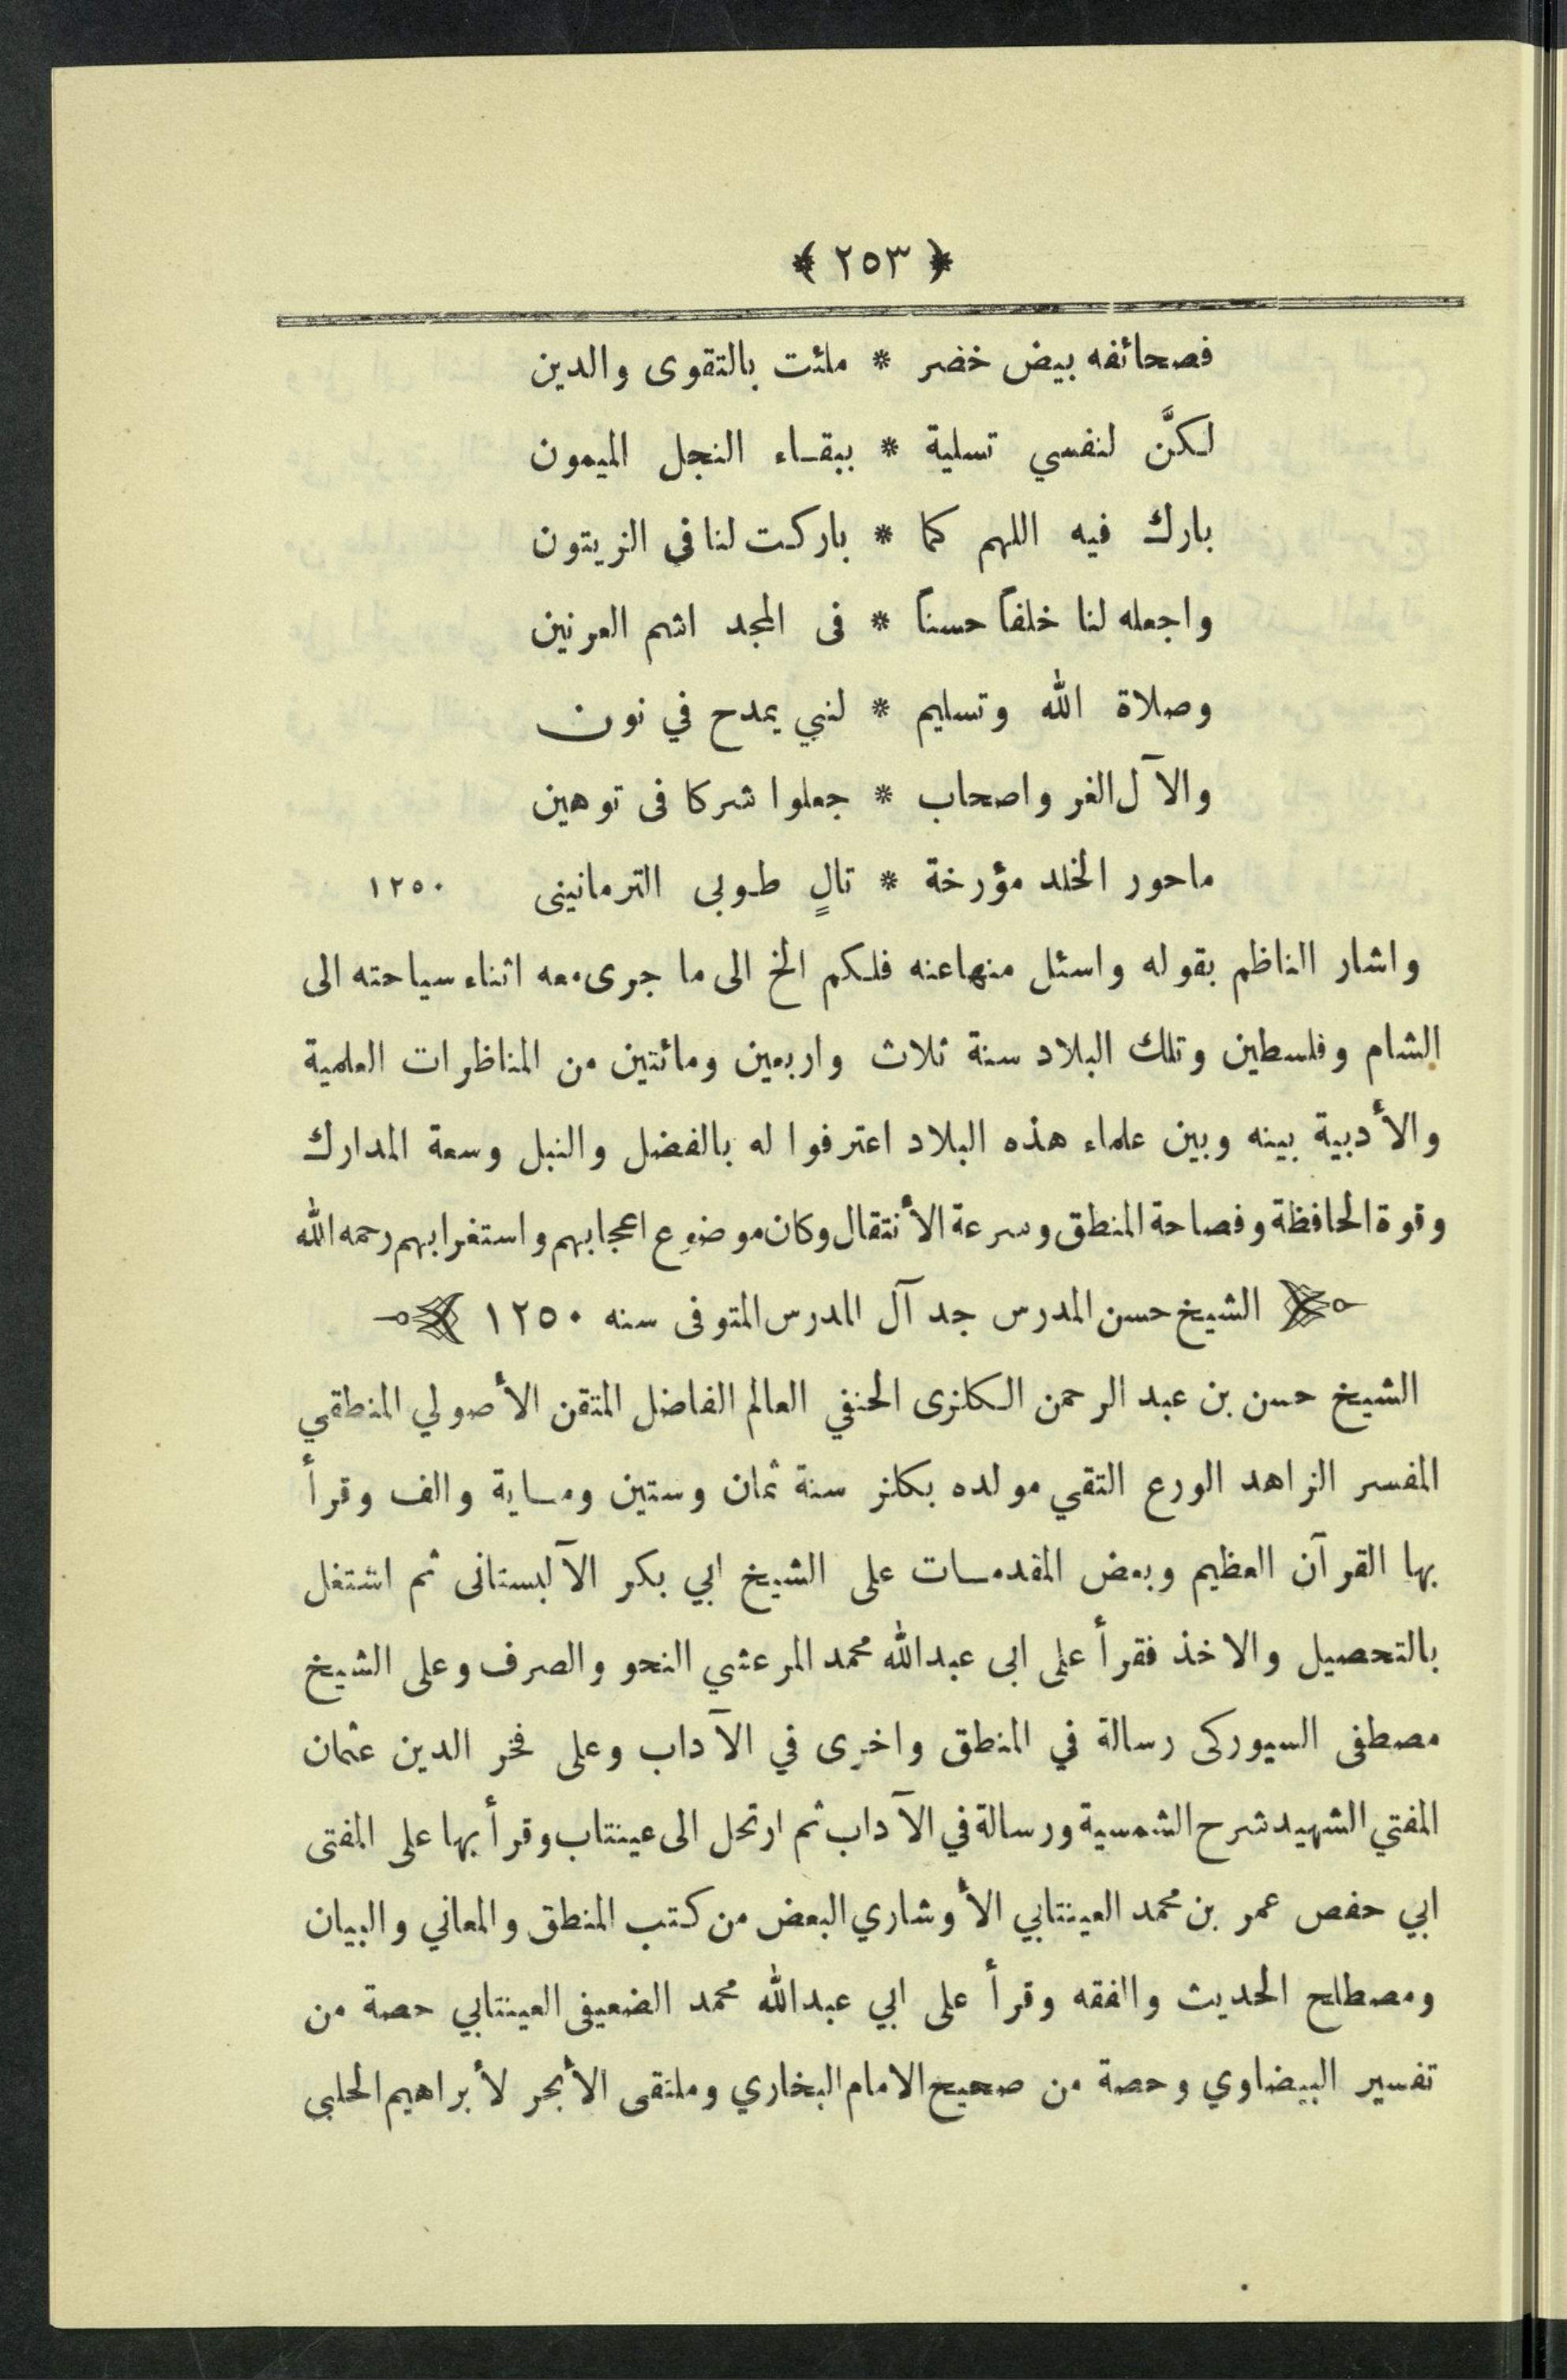 ﴿ ٢٥٣ ﴾
فصحائفه بيض خضر * ملئت بالتقوى والدين
لكنَّ لنفسي تسلية * ببقاء النجل الميمون
بارك فيه اللهم كما * باركت لنا في الزيتون
واجعله لنا خلفاً حسناً * فى المجد اشم العرنين
وصلاة الله وتسليم * لنبي يمدح في نون
والآل الغر واصحاب * جعلوا شركا فى توهين
ماحور الخلد مؤرخة * تالٍ طوبى الترمانينى ١٢٥٠
واشار الناظم بقوله واسئل منها عنه فلكم الخ الى ما جرى معه اثناء سياحته الى
الشام وفلسطين وتلك البلاد سنة ثلاث واربعين ومائتين من المناظرات العلمية
والأدبية بينه وبين علماء هذه البلاد اعترفوا له بالفضل والنبل وسعة المدارك
وقوة الحافظة وفصاحة المنطق وسرعة الأنتقال وكان موضوع اعجابهم واستغرابهم رحمه الله
الشيخ حسن المدرس جد آل المدرس المتوفى سنه ١٢٥٠
الشيخ حسن بن عبد الرحمن الكلزى الحنفي العالم الفاضل المتقن الأصولي المنطقي
المفسر الزاهد الورع التقي مولده بكلز سنة ثمان وستين وماية والف وقرأ
بها القرآن العظيم وبعض المقدمات على الشيخ ابي بكر الآلبستانى ثم اشتغل
بالتحصيل والاخذ فقرأ على ابى عبدالله محمد المرعشي النحو والصرف وعلى الشيخ
مصطفى السيوركى رسالة في المنطق واخرى في الآداب وعلى فخر الدين عثمان
المفتي الشهيد شرح الشمسية ورسالة في الآداب ثم ارتحل الى عينتاب وقرأ بها على المفتى
ابي حفص عمر بن محمد العينتابي الأوشاري البعض من كتب المنطق والمعاني والبيان
ومصطلح الحديث والفقه وقرأ على ابي عبدالله محمد الضعيفى العينتابي حصة من
تفسير البيضاوي وحصة من صحيح الامام البخاري وملتقى الأبحر لأبراهيم الحلبى